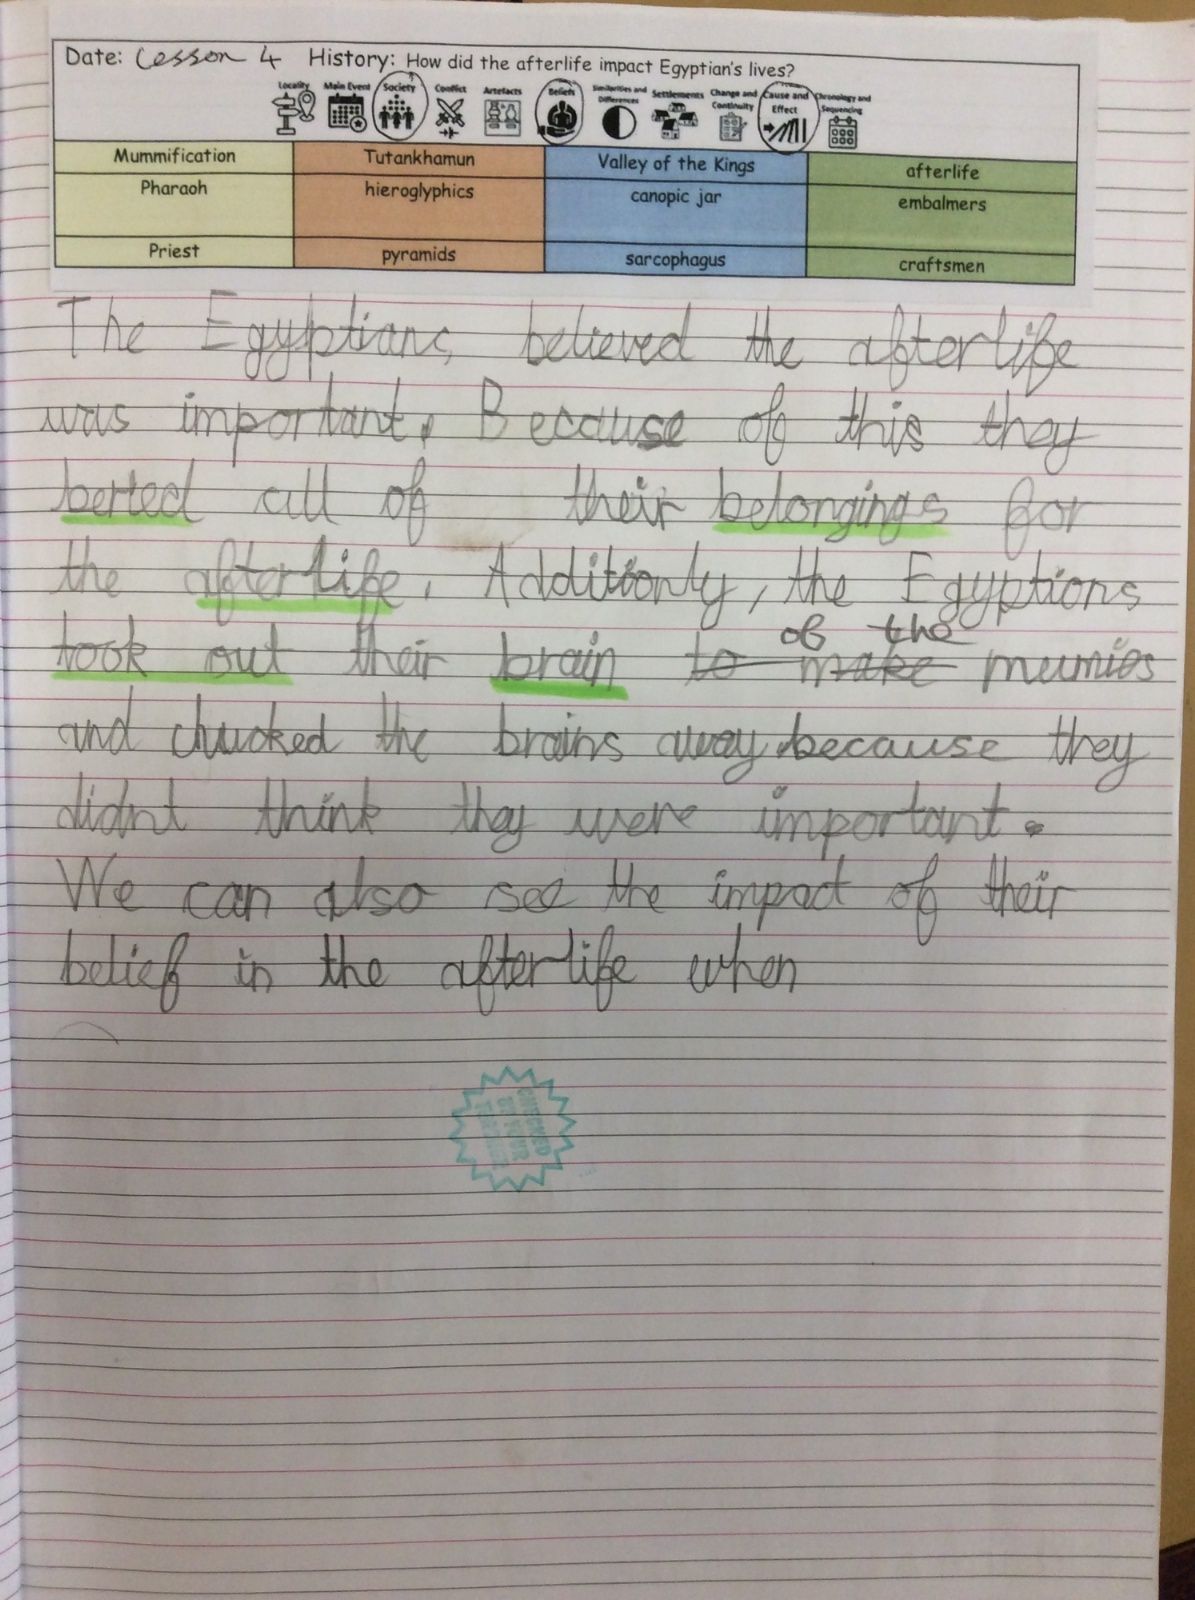 Date: Lesson 4 History: How did the afterlife impact Egyptian's lives?
Locality Main Event Society Conflict Artefacts Beliefs Similarities and Differences Settlements Change and Continuity Cause and Effect Chronology and Sequencing
Mummification Tutankhamun Valley of the Kings afterlife
Pharaoh hieroglyphics canopic jar embalmers
Priest pyramids sarcophagus craftsmen
The Egyptians believed the afterlife
was important. Because of this they
berted all of their belongings for
the afterlife. Additionly, the Egyptions
of the
took out their brain to make mumies
and chucked the brains away because they
didnt think they were important.
We can also see the impact of their
belief in the afterlife when
CHECKED
BY YOUR
TEACHER